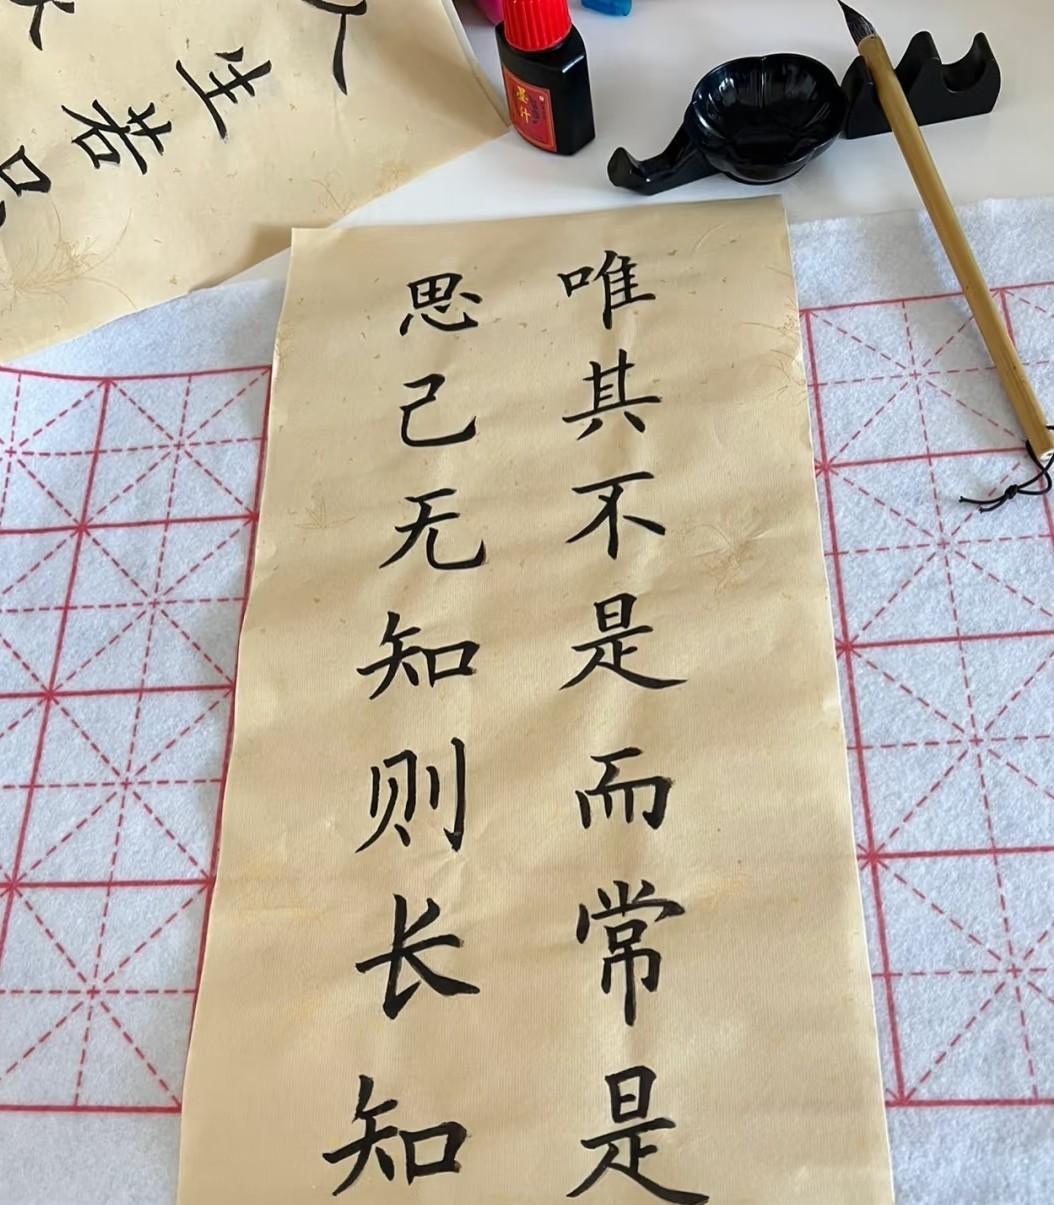 唯其不是而常是
思己无知则长知
哇若
墨汁